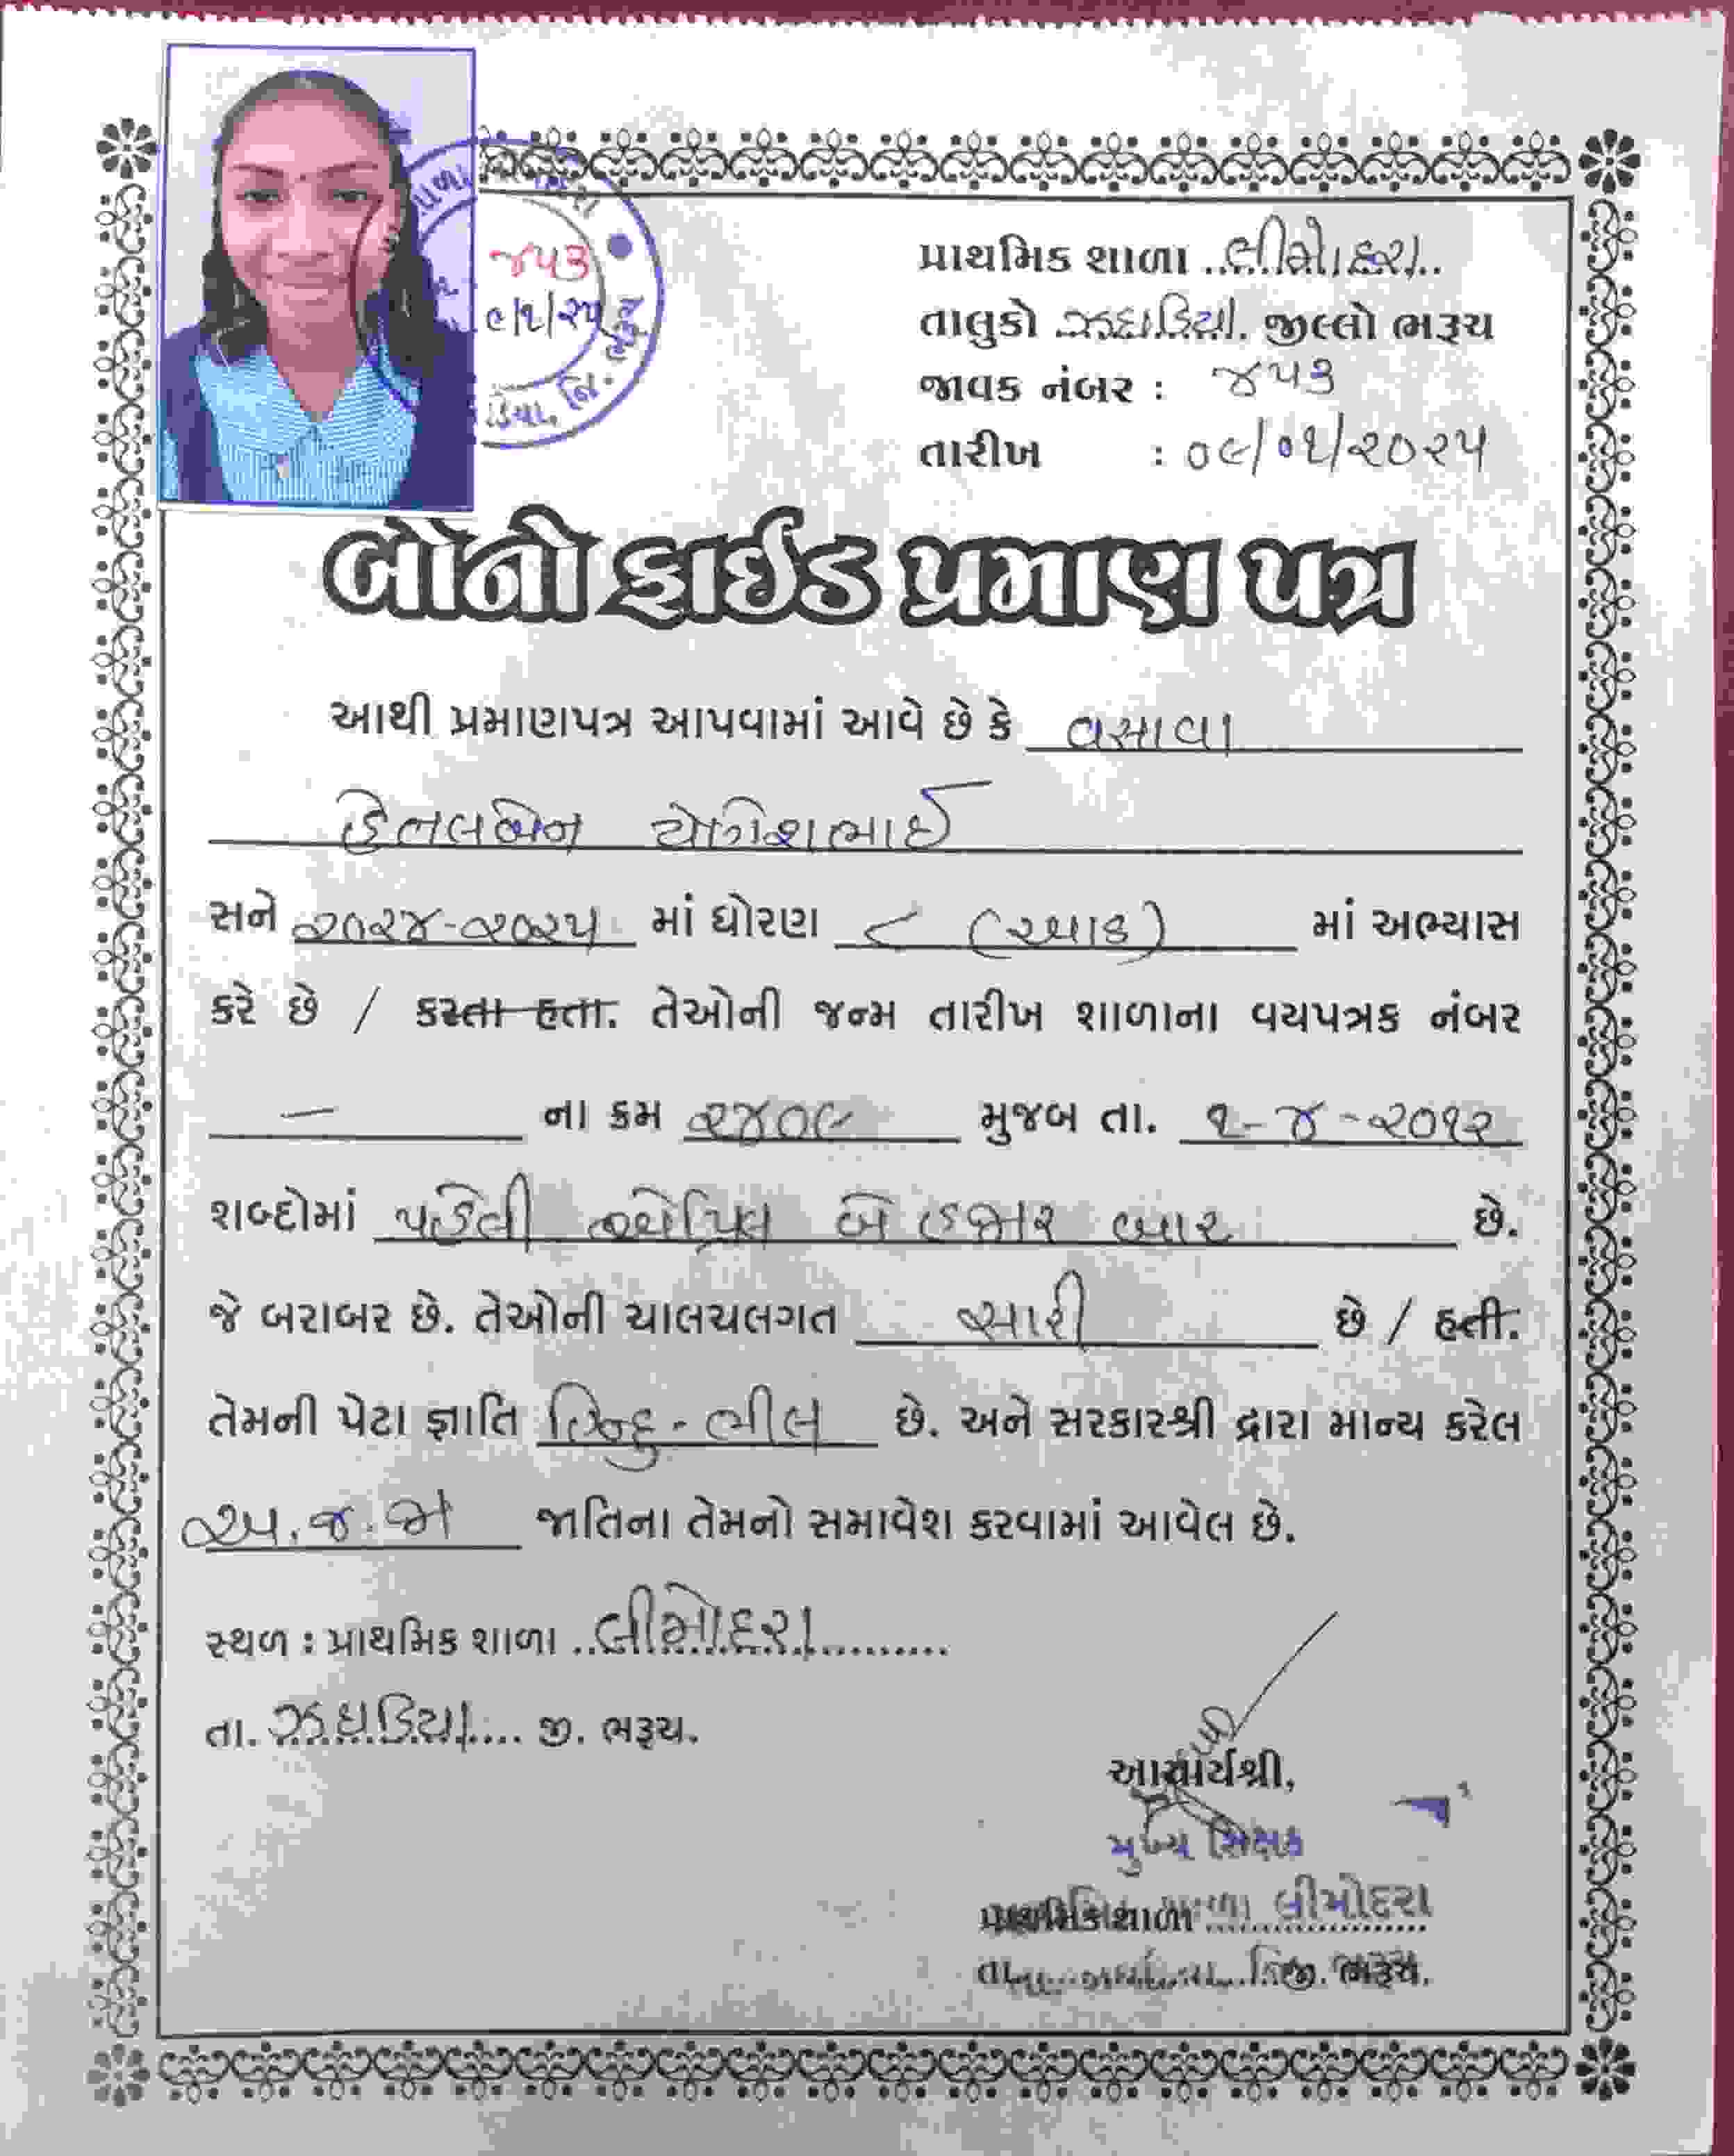 પ્રાથમિક શાળા ..લીમોદરા..
તાલુકો .ઝઘડિયા. જીલ્લો ભરૂચ
જાવક નંબર : ૪૫૩
તારીખ : ૦૯/૦૧/૨૦૨૫
૪૫૩
૯/૧/૨૫
જિ. ભરૂચ
બોનોફાઈડ પ્રમાણ પત્ર
આથી પ્રમાણપત્ર આપવામાં આવે છે કે વસાવા
હેતલબેન યોગેશભાઈ
સને ૨૦૨૪-૨૦૨૫ માં ધોરણ ૮ (આઠ) માં અભ્યાસ
કરે છે / કરતા હતા. તેઓની જન્મ તારીખ શાળાના વયપત્રક નંબર
— ના ક્રમ ૨૪૦૯ મુજબ તા. ૧-૪-૨૦૧૨
શબ્દોમાં પહેલી એપ્રિલ બે હજાર બાર છે.
જે બરાબર છે. તેઓની ચાલચલગત સારી છે / હતી.
તેમની પેટા જ્ઞાતિ હિન્દુ-ભીલ છે. અને સરકારશ્રી દ્રારા માન્ય કરેલ
અ.જ.જા જાતિના તેમનો સમાવેશ કરવામાં આવેલ છે.
સ્થળ : પ્રાથમિક શાળા ..લીમોદરા..........
તા. ઝઘડિયા.... જી. ભરૂચ.
આચાર્યશ્રી,
મુખ્ય શિક્ષક
પ્રાથમિક શાળા લીમોદરા
તા. જી. ભરૂચ.